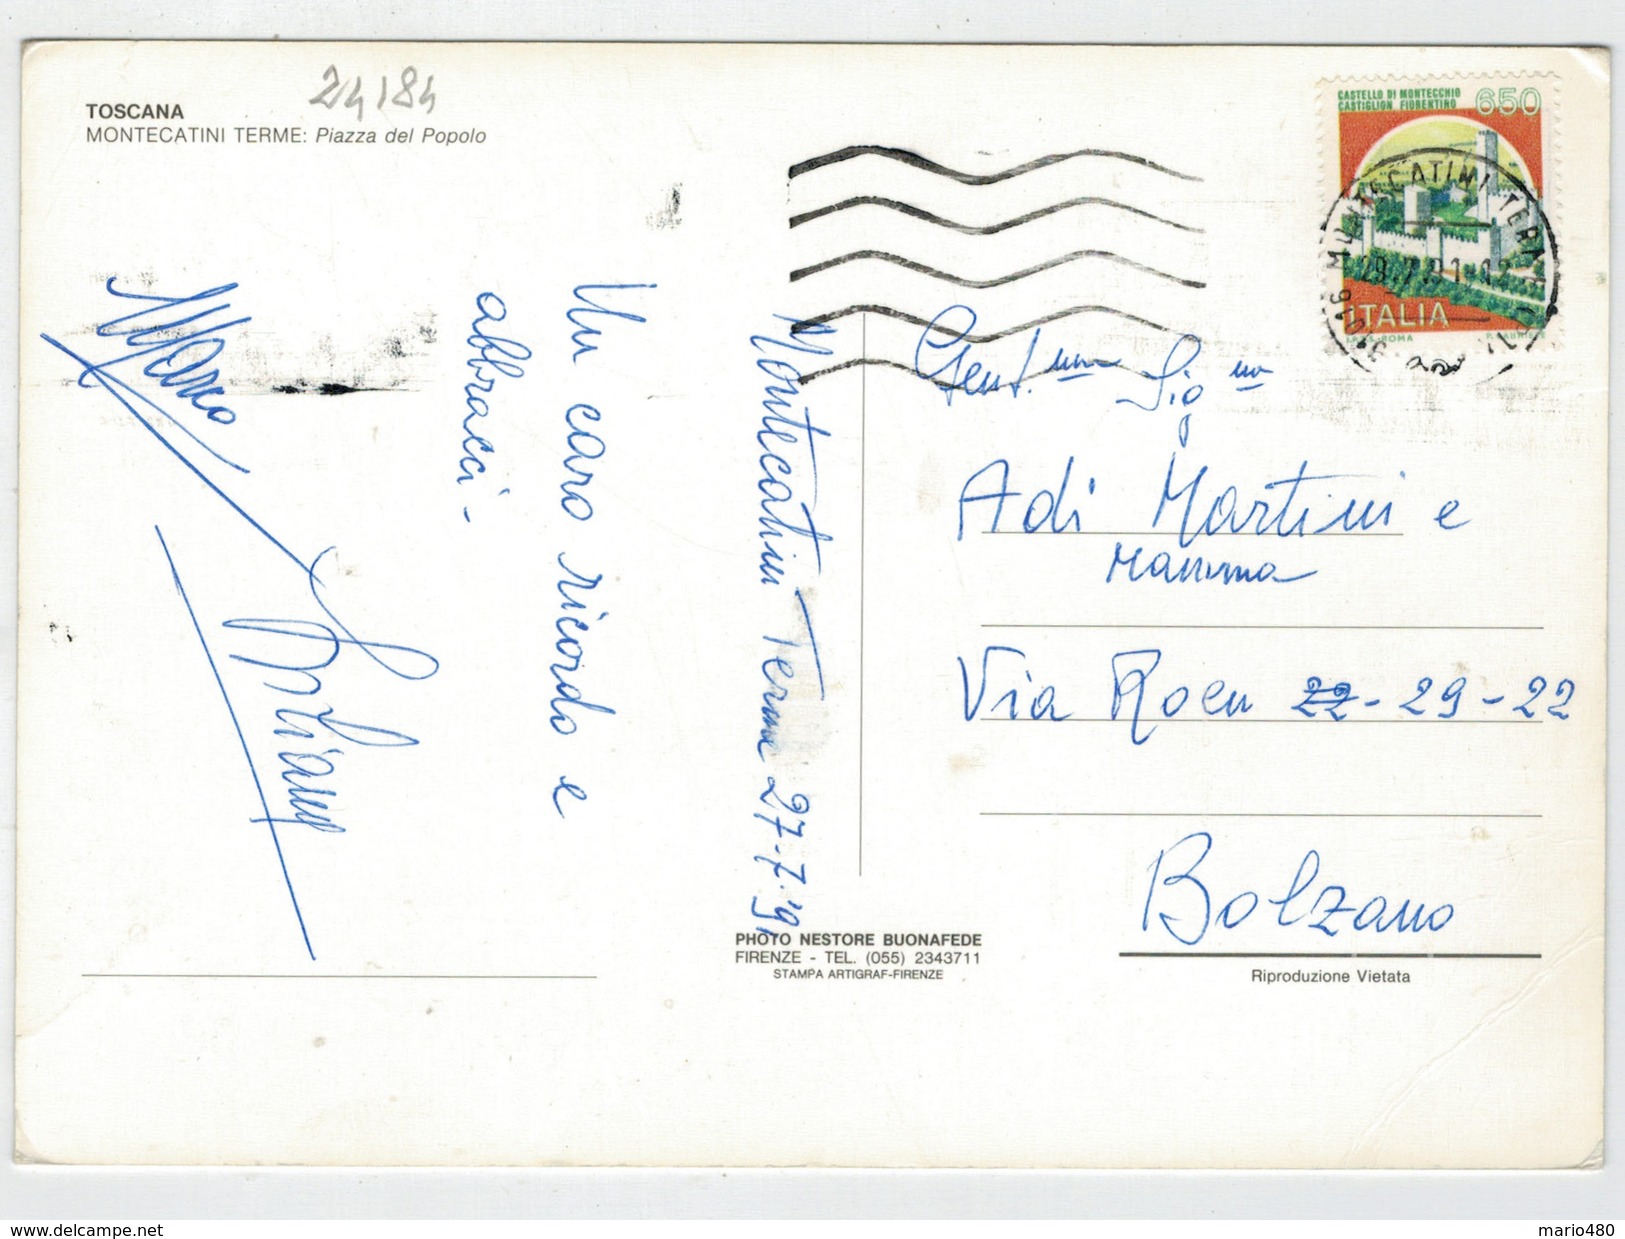 24184
TOSCANA
MONTECATINI TERME: Piazza del Popolo
CASTELLO DI MONTECCHIO
CASTIGLION FIORENTINO
650
ITALIA
MONTECATINI TERME
Montecatini Terme 27-7-'91
Un caro ricordo e
abbracci -
Gent.ma Sig.na
Adi Martini e
Mamma
Via Roen 22 - 29 - 22
Bolzano
PHOTO NESTORE BUONAFEDE
FIRENZE - TEL. (055) 2343711
STAMPA ARTIGRAF-FIRENZE
Riproduzione Vietata
mario480